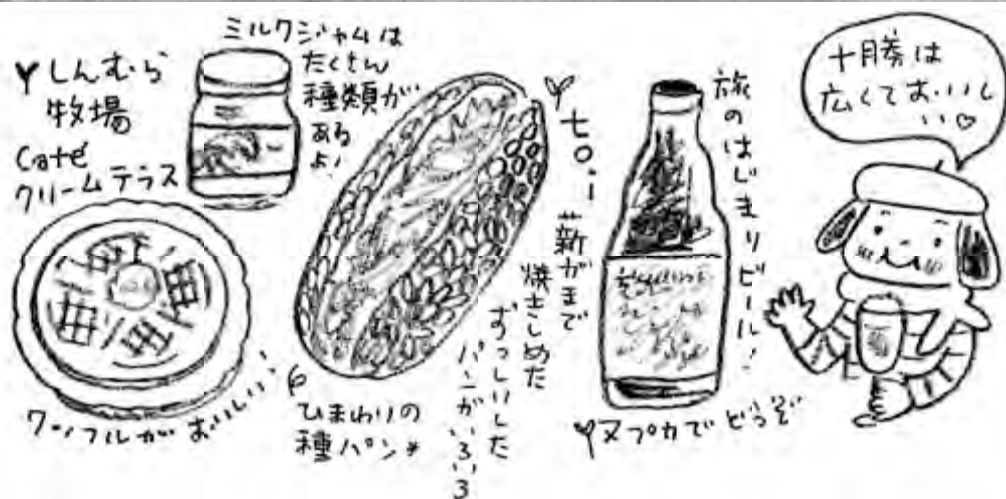 しんむら
牧場
Café
クリームテラス
ミルクジャムは
たくさん
種類が
ある
よ!
ワッフルがおいしい
toi
薪がまで
焼きしめた
ずっしりした
パンがいろいろ
ひまわりの
種パン
旅のはじまりビール!
ヌプカでどうぞ
十勝は
広くておいし
い♡